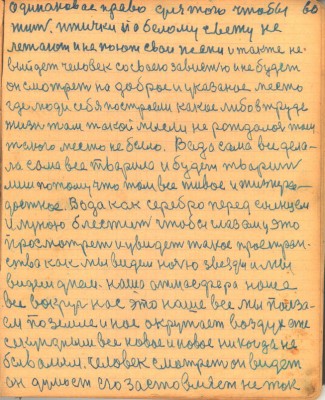 одинаковае право для того чтобы 60
жит. птички по белому свету не
летают и не поют свои песни и также не
выйдет человек со своего завистю и не будет
он смотрет на доброе и указаное место
где люди себя построели какое либо в труде
жизн там такой мысли не рождалос там
такого место не было. Вада сама все дела-
ла сама все тварила и будет творит
мы потому что там все живое и
достное. Вада как серебро перед солнцем
и луною блестит чтобы глазам это
просмотрет и увидет такое простран-
ства как мы видем ночю звезды и мы
видем днем. наша атмасфера наша
все вокруг нас это наше все мы
по земле и нас окружает воздух
все новое и новое никогда не
бывалым. Человек смотрет он видет
он думает его заставляет не так